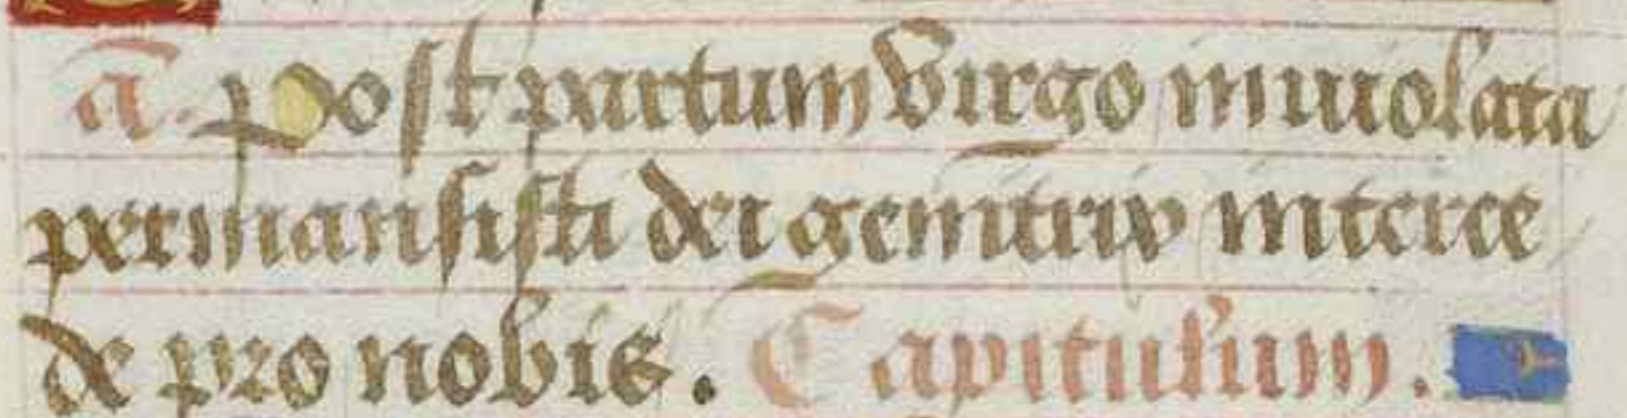 ā. Post partum virgo inuiolata
permansisti dei genitrix interce
de pro nobis. Capitulum.